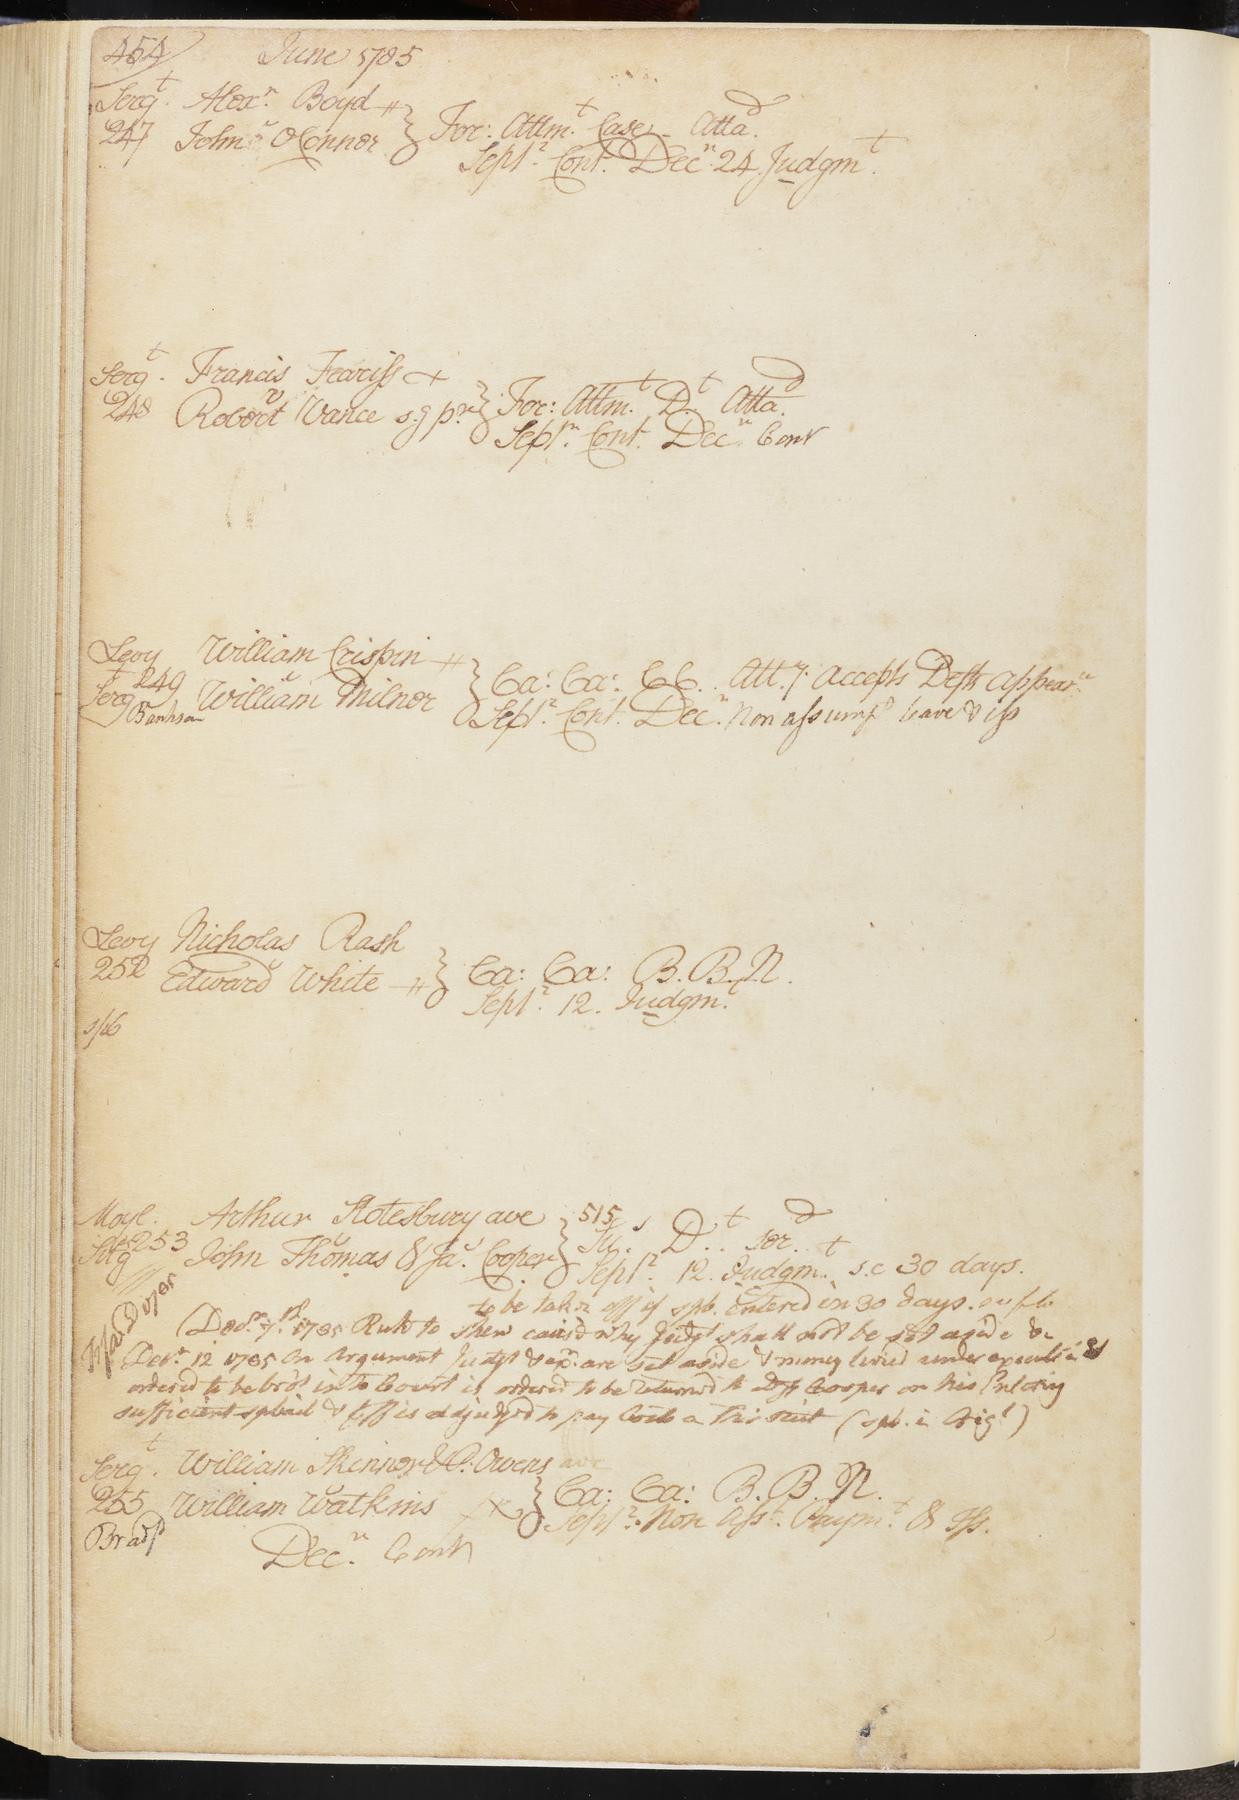 454 June 1785
Serg.t Alex.r Boyd
247 v John OConnor } For: Attm.t Case - Atta.d
Sept.r Cont. Dec.r 24 Judgm.t
Serg.t Francis Feariss
248 v Robert Vance s.g p.r } For: Attm.t D.t Atta.d
Sept.r Cont. Dec.r Cont
Levy William Crispin
249 v William Milnor } Ca: Ca: CC. Att.y accepts Defts appear.ce
Serg.t Sept.r Cont. Dec.r Non assump.t leave & iss
Bankson
Levy Nicholas Rash
252 v Edward White } Ca: Ca: B.B.N.
Sept.r 12. Judgm.t
spb
Moyl. Arthur Stotesbury ave } 515
253 v John Thomas & Ja.s Cooper } Su.s D.t ser.d
Serg Sept.r 12. Judgm.t s.c 30 days.
to be taken off if spb. Entered in 30 days.
(Dec.r 7.th 1785 Rule to shew cause why Judgt shall not be set aside &c
Dec.r 12 1785 On Argument Judgt & ex.n are set aside & money levied under execution
ordered to be brot into Court is ordered to be returned to Deft Cooper on his Entering
sufficient spbail & Plff is adjudged to pay Costs a this suit (spb. in Orig.l)
Serg.t William Skinner & C: Owens ave
255 v William Watkins } Ca: Ca: B.B.N.
Sept.r Non Ass.t Paym.t & Iss.
Bradf
Dec.r Cont